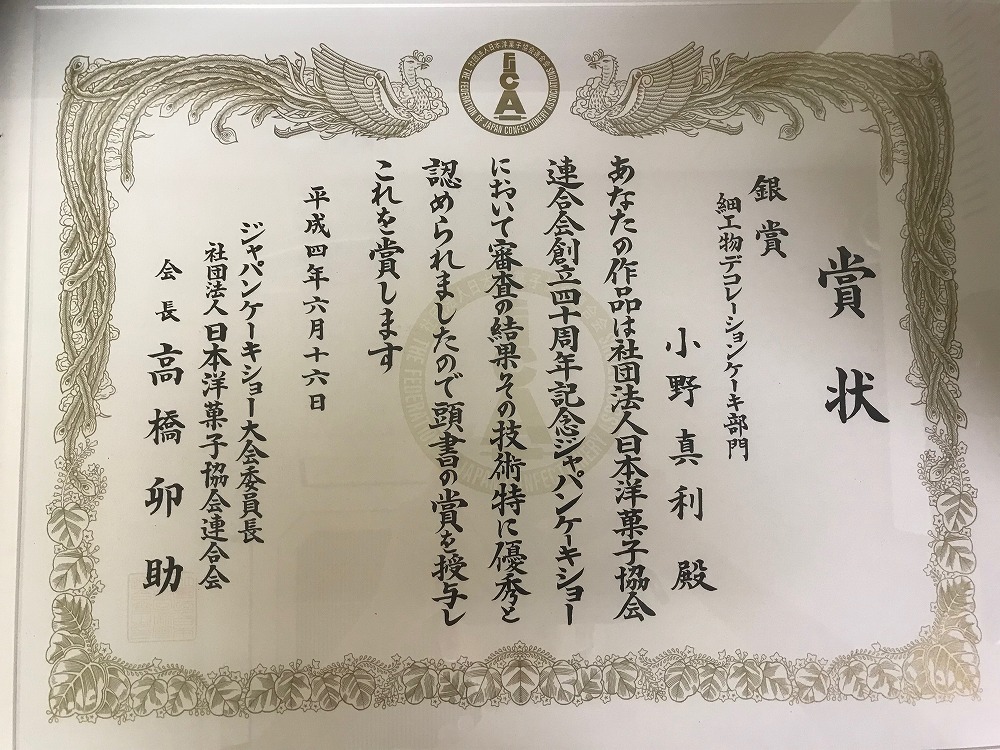 社団法人日本洋菓子協会連合会
FJCA
THE FEDERATION OF JAPAN CONFECTIONERY ASSOCIATIONS
賞状
銀賞
細工物デコレーションケーキ部門
小野真利殿
あなたの作品は社団法人日本洋菓子協会
連合会創立四十周年記念ジャパンケーキショー
において審査の結果その技術特に優秀と
認められましたので頭書の賞を授与し
これを賞します
平成四年六月十六日
ジャパンケーキショー大会委員長
社団法人日本洋菓子協会連合会
会長 高橋卯助